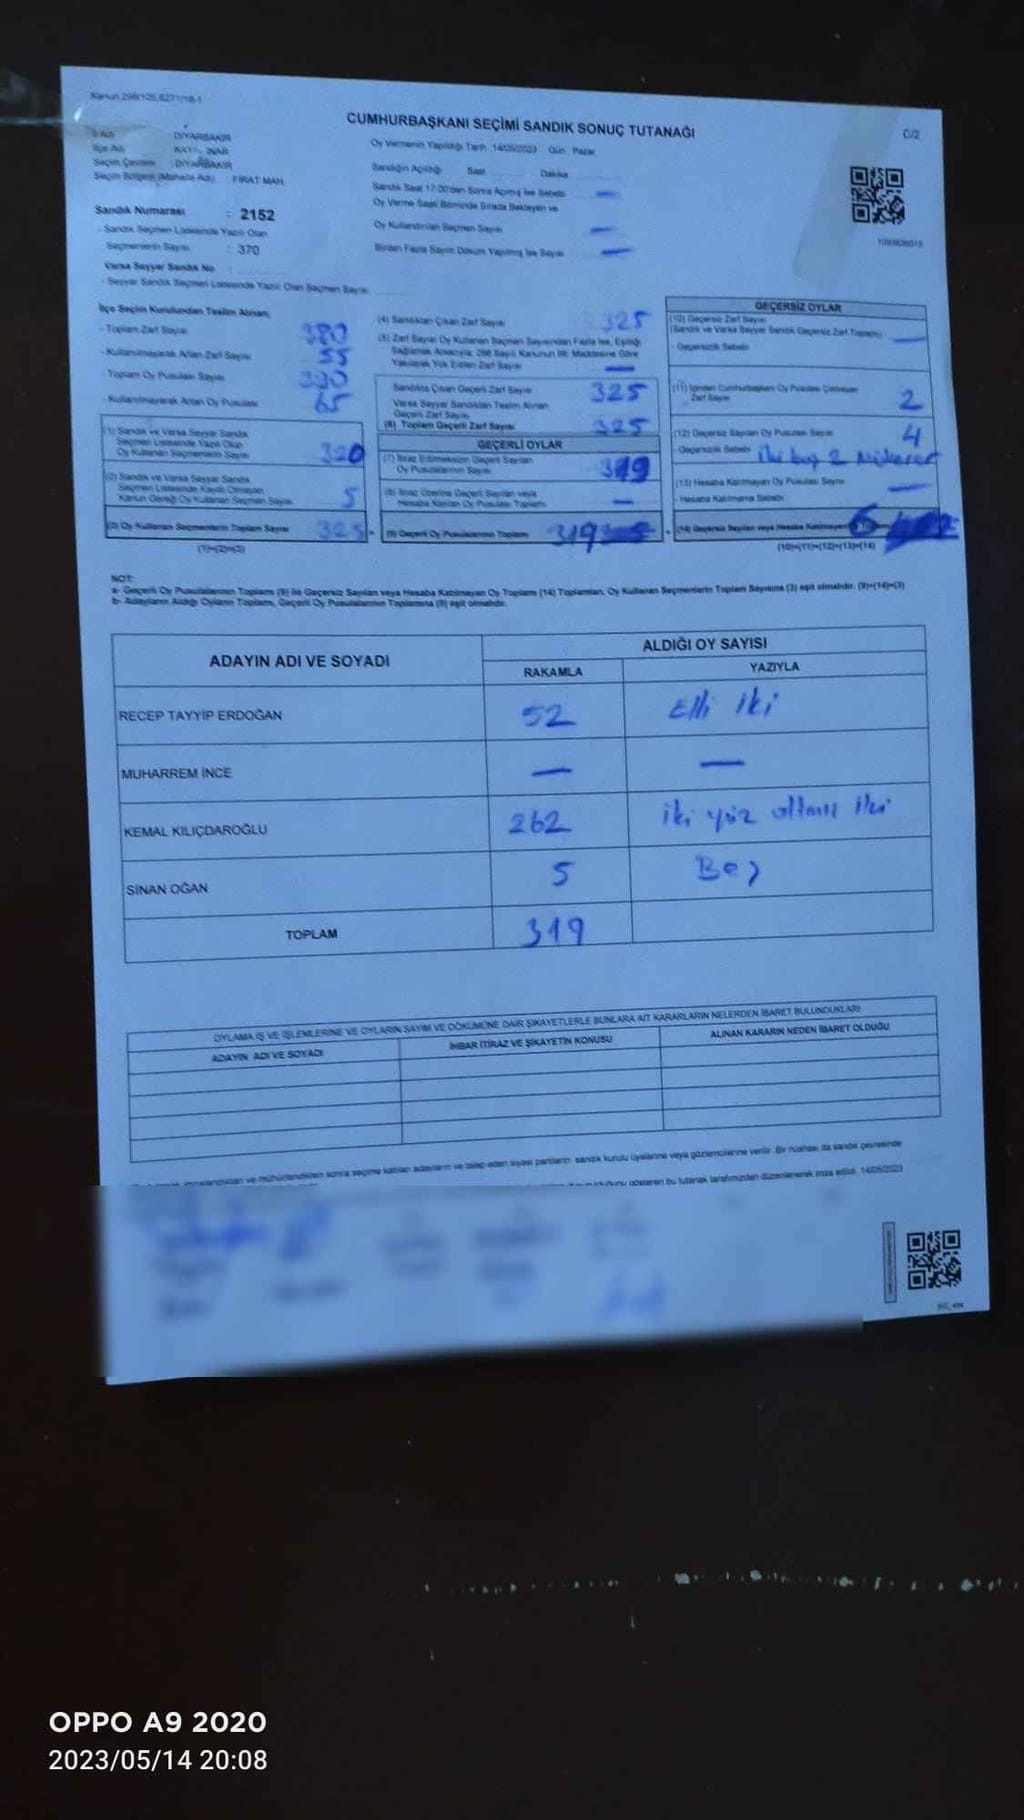 Kanun 298/105,6271/18-1
CUMHURBAŞKANI SEÇİMİ SANDIK SONUÇ TUTANAĞI
C/2
İl Adı : DİYARBAKIR
İlçe Adı
Seçim Çevresi : DİYARBAKIR
Seçim Bölgesi (Mahalle Adı) : FIRAT MAH.
Oy Vermenin Yapıldığı Tarih: 14/05/2023 Gün: Pazar
Sandığın Açıldığı Saat Dakika
Sandık Saat 17:00'den Sonra Açılmış İse Sebebi —
Oy Verme Saati Bitiminde Sırada Bekleyen ve
Oy Kullandırılan Seçmen Sayısı —
Birden Fazla Sayım Döküm Yapılmış İse Sayısı —
Sandık Numarası : 2152
- Sandık Seçmen Listesinde Yazılı Olan
Seçmenlerin Sayısı : 370
Varsa Seyyar Sandık No :
- Seyyar Sandık Seçmen Listesinde Yazılı Olan Seçmen Sayısı:
İlçe Seçim Kurulundan Teslim Alınan;
- Toplam Zarf Sayısı 380
- Kullanılmayarak Artan Zarf Sayısı 55
- Toplam Oy Pusulası Sayısı
- Kullanılmayarak Artan Oy Pusulası 65
(1) Sandık ve Varsa Seyyar Sandık
Seçmen Listesinde Yazılı Olup
Oy Kullanan Seçmenlerin Sayısı 320
(2) Sandık ve Varsa Seyyar Sandık
Seçmen Listesinde Kayıtlı Olmayan
Kanun Gereği Oy Kullanan Seçmen Sayısı 5
(3) Oy Kullanan Seçmenlerin Toplam Sayısı 325
(1)+(2)=(3)
(4) Sandıktan Çıkan Zarf Sayısı 325
(5) Zarf Sayısı Oy Kullanan Seçmen Sayısından Fazla İse, Eşitliği
Sağlamak Amacıyla; 298 Sayılı Kanunun 98. Maddesine Göre
Yakılarak Yok Edilen Zarf Sayısı —
Sandıkta Çıkan Geçerli Zarf Sayısı 325
Varsa Seyyar Sandıktan Teslim Alınan
Geçerli Zarf Sayısı
(6) Toplam Geçerli Zarf Sayısı 325
GEÇERLİ OYLAR
(7) İtiraz Edilmeksizin Geçerli Sayılan
Oy Pusulalarının Sayısı 319
(8) İtiraz Üzerine Geçerli Sayılan veya
Hesaba Katılan Oy Pusulası Toplamı —
(9) Geçerli Oy Pusulalarının Toplamı 319
GEÇERSİZ OYLAR
(10) Geçersiz Zarf Sayısı
(Sandık ve Varsa Seyyar Sandık Geçersiz Zarf Toplamı) —
- Geçersizlik Sebebi
(11) İçinden Cumhurbaşkanı Oy Pusulası Çıkmayan
Zarf Sayısı 2
(12) Geçersiz Sayılan Oy Pusulası Sayısı 4
- Geçersizlik Sebebi iki boş 2 Mükerer
(13) Hesaba Katılmayan Oy Pusulası Sayısı —
- Hesaba Katılmama Sebebi
(14) Geçersiz Sayılan veya Hesaba Katılmayan 6
(10)+(11)+(12)+(13)=(14)
NOT:
a- Geçerli Oy Pusulalarının Toplamı (9) ile Geçersiz Sayılan veya Hesaba Katılmayan Oy Toplamı (14) Toplamları, Oy Kullanan Seçmenlerin Toplam Sayısına (3) eşit olmalıdır. (9)+(14)=(3)
b- Adayların Aldığı Oyların Toplamı, Geçerli Oy Pusulalarının Toplamına (9) eşit olmalıdır.
ADAYIN ADI VE SOYADI
ALDIĞI OY SAYISI
RAKAMLA YAZIYLA
RECEP TAYYİP ERDOĞAN 52 Elli iki
MUHARREM İNCE — —
KEMAL KILIÇDAROĞLU 262 iki yüz altmış iki
SİNAN OĞAN 5 Beş
TOPLAM 319
OYLAMA İŞ VE İŞLEMLERİNE VE OYLARIN SAYIM VE DÖKÜMÜNE DAİR ŞİKAYETLERLE BUNLARA AİT KARARLARIN NELERDEN İBARET BULUNDUKLARI
ADAYIN ADI VE SOYADI İHBAR İTİRAZ VE ŞİKAYETİN KONUSU ALINAN KARARIN NEDEN İBARET OLDUĞU
imzalandıktan ve mühürlendikten sonra seçime katılan adayların ve talep eden siyasi partilerin sandık kurulu üyelerine veya gözlemcilerine verilir. Bir nüshası da sandık çevresinde
gösteren bu tutanak tarafımızdan düzenlenerek imza edildi. 14/05/2023
OPPO A9 2020
2023/05/14 20:08